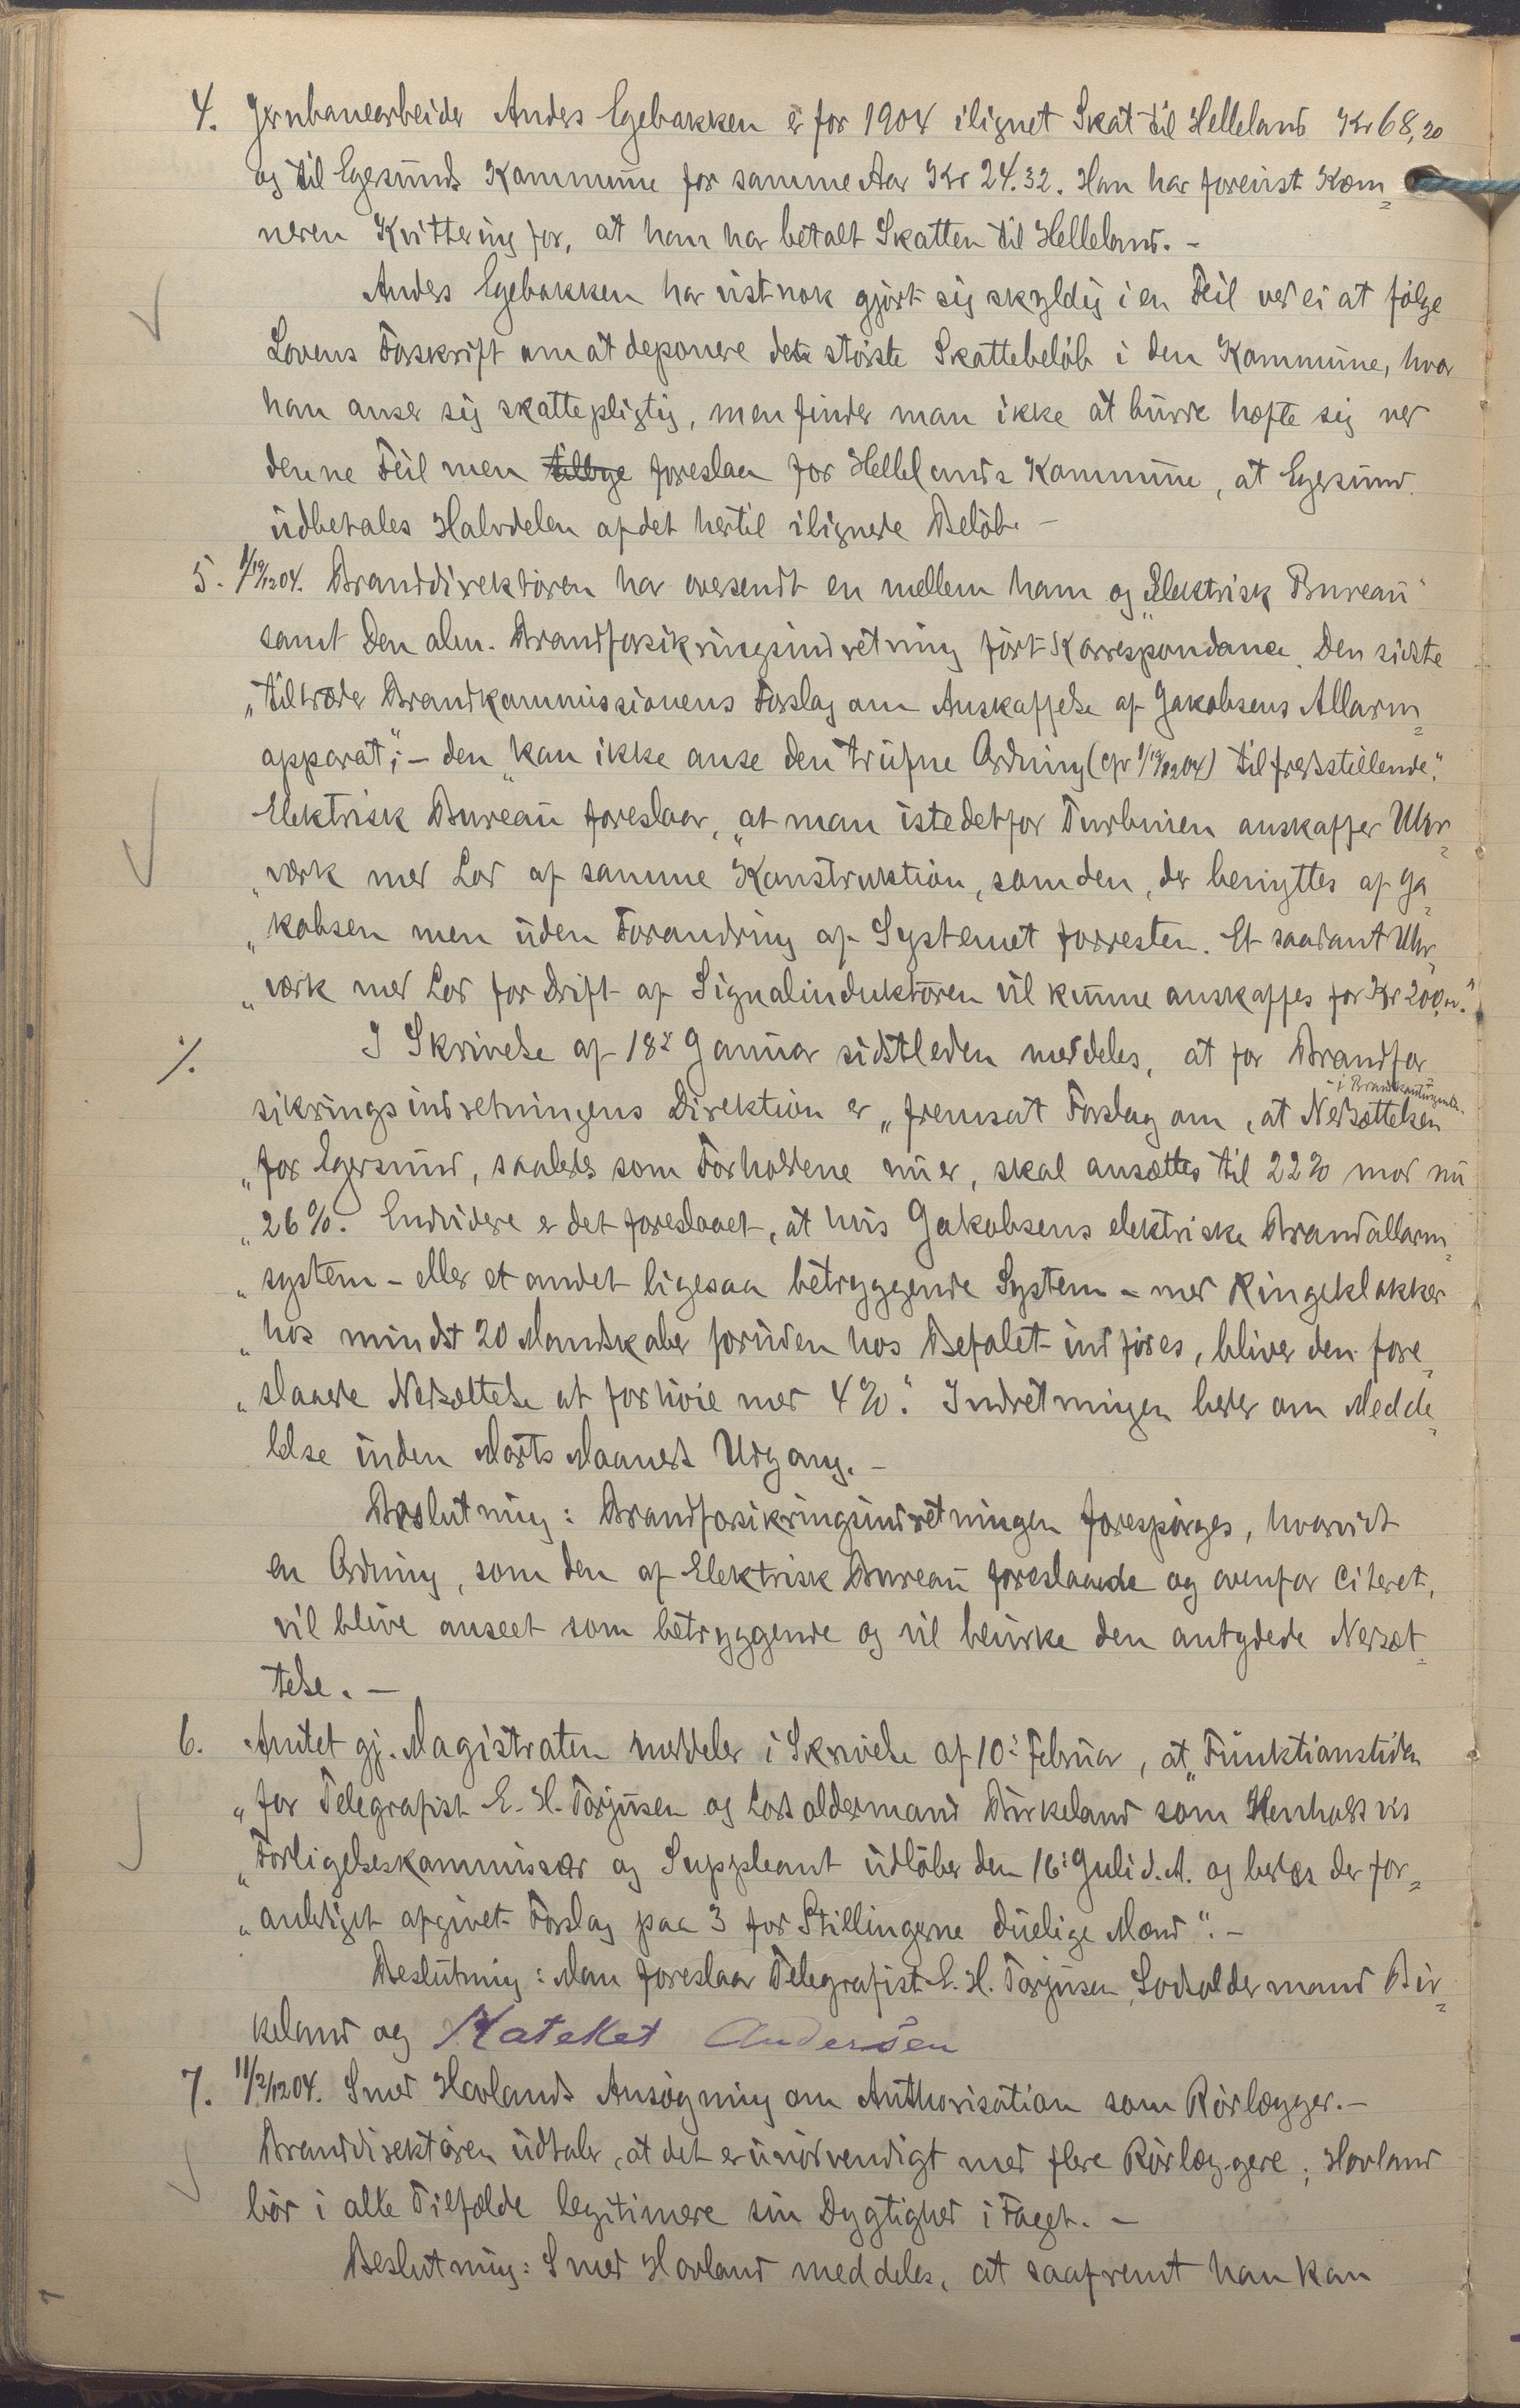 4. Jernbanearbeider Anders Egebakken er for 1904 ilignet Skat til Helleland Kr 68,20
og til Egersunds Kommune for samme Aar Kr 24.32. Han har forevist Kæm-
neren Kvittering for, at han har betalt Skatten til Helleland. -
Anders Egebakken har vistnok gjort sig skyldig i en Feil ved ei at følge
Lovens Forskrift om at deponere det største Skattebeløb i den Kommune, hvor
han anser sig skattepligtig, men finder man ikke at burde hæfte sig ved
denne Feil men foreslaa for Hellelands Kommune, at Egersund
udbetales Halvdelen af det hertil ilignede Beløb. -
5. 1/19/12 04. Branddirektøren har oversendt en mellem ham og "Elektrisk Bureau"
samt Den alm. Brandforsikringsindretning ført Korrespondance. Den sidste
"tiltræder Brandkommissionens Forslag om Anskaffelse af Jakobsens Allarm-
apparat"; - den "kan ikke anse den trufne Ordning (cfr 1/19/12 04) tilfredsstillende."
Elektrisk Bureau foreslaar, "at man istedetfor Turbinen anskaffer Uhr-
"værk med Lod af samme Konstruktion, som den, der benyttes af Ja-
"kobsen men uden Forandring af Systemet forresten. Et saadant Uhr-
"værk med Lod for Drift af Signalinduktoren vil kunne anskaffes for Kr 200,00."
%. I Skrivelse af 18de Januar sidstleden meddeles, at for Brandfor-
- i Brandkontingenten -
sikringsindretningens Direktion er "fremsat Forslag om, at Nedsættelsen
"for Egersund, saaledes som Forholdene nu er, skal ansættes til 22% mod nu
"26%. Endvidere er det foreslaaet, at hvis Jakobsens elektriske Brandallarm-
"system - eller et andet ligesaa betryggende System - med Ringeklokker
"hos mindst 20 Mandskaber foruden hos Befalet indføres, bliver den fore-
"slaaede Nedsættelse at forhøie med 4%." Indretningen beder om Medde-
lelse inden Marts Maaneds Udgang. -
Beslutning: Brandforsikringsindretningen forespørges, hvorvidt
en Ordning, som den af Elektrisk Bureau foreslaaede og ovenfor citeret,
vil blive anseet som betryggende og vil bevirke den antydede Nedsæt-
telse. -
6. Amtet gj. Magistraten meddeler i Skrivelse af 10: Februar, at "Funktionstiden
"for Telegrafist E. H. Torjusen og Lodsoldermand Birkeland som henholdsvis
"Forligelseskommissær og Suppleant udløber den 16: Juli d. A. og bedes der for-
"anlediget afgivet Forslag paa 3 for Stillingerne duelige Mænd". -
Beslutning: Man foreslaar Telegrafist E. H. Torjusen, Lodsoldermand Bir-
keland og Kateket Andersen
7. 11/2/12 04. Smed Hovlands Ansøgning om Authorisation som Rørlægger. -
Branddirektøren udtaler, at det er unødvendigt med flere Rørlæggere; Hovland
bør i alle Tilfælde legitimere sin Dygtighed i Faget. -
Beslutning: Smed Hovland meddeles, at saafremt han kan